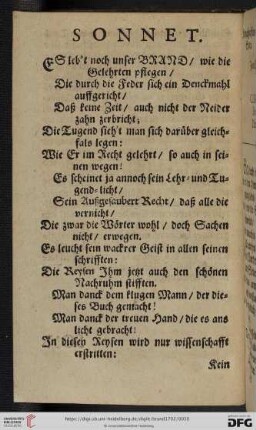 SONNET.
ES leb't noch unser BRAND/ wie die
Gelehrten pflegen/
Die durch die Feder sich ein Denckmahl
auffgericht/
Daß keine Zeit/ auch nicht der Neider
zahn zerbricht;
Die Tugend sieh't man sich darüber gleich-
fals legen:
Wie Er im Recht gelehrt/ so auch in sei-
nen wegen:
Es scheinet ja annoch sein Lehr- und Tu-
gend-licht/
Sein Außgesaubert Recht/ daß alle die
vernicht/
Die zwar die Wörter wohl/ doch Sachen
nicht/ erwegen.
Es leucht sein wackrer Geist in allen seinen
schrifften:
Die Reysen Ihm jetzt auch den schönen
Nachruhm stifften.
Man danck dem klugen Mann/ der die-
ses Buch gemacht!
Man danck der treuen Hand/ die es ans
licht gebracht:
In diesen Reysen wird nur wissenschafft
erstritten:
Kein
UNIVERSITÄTS-
BIBLIOTHEK
HEIDELBERG